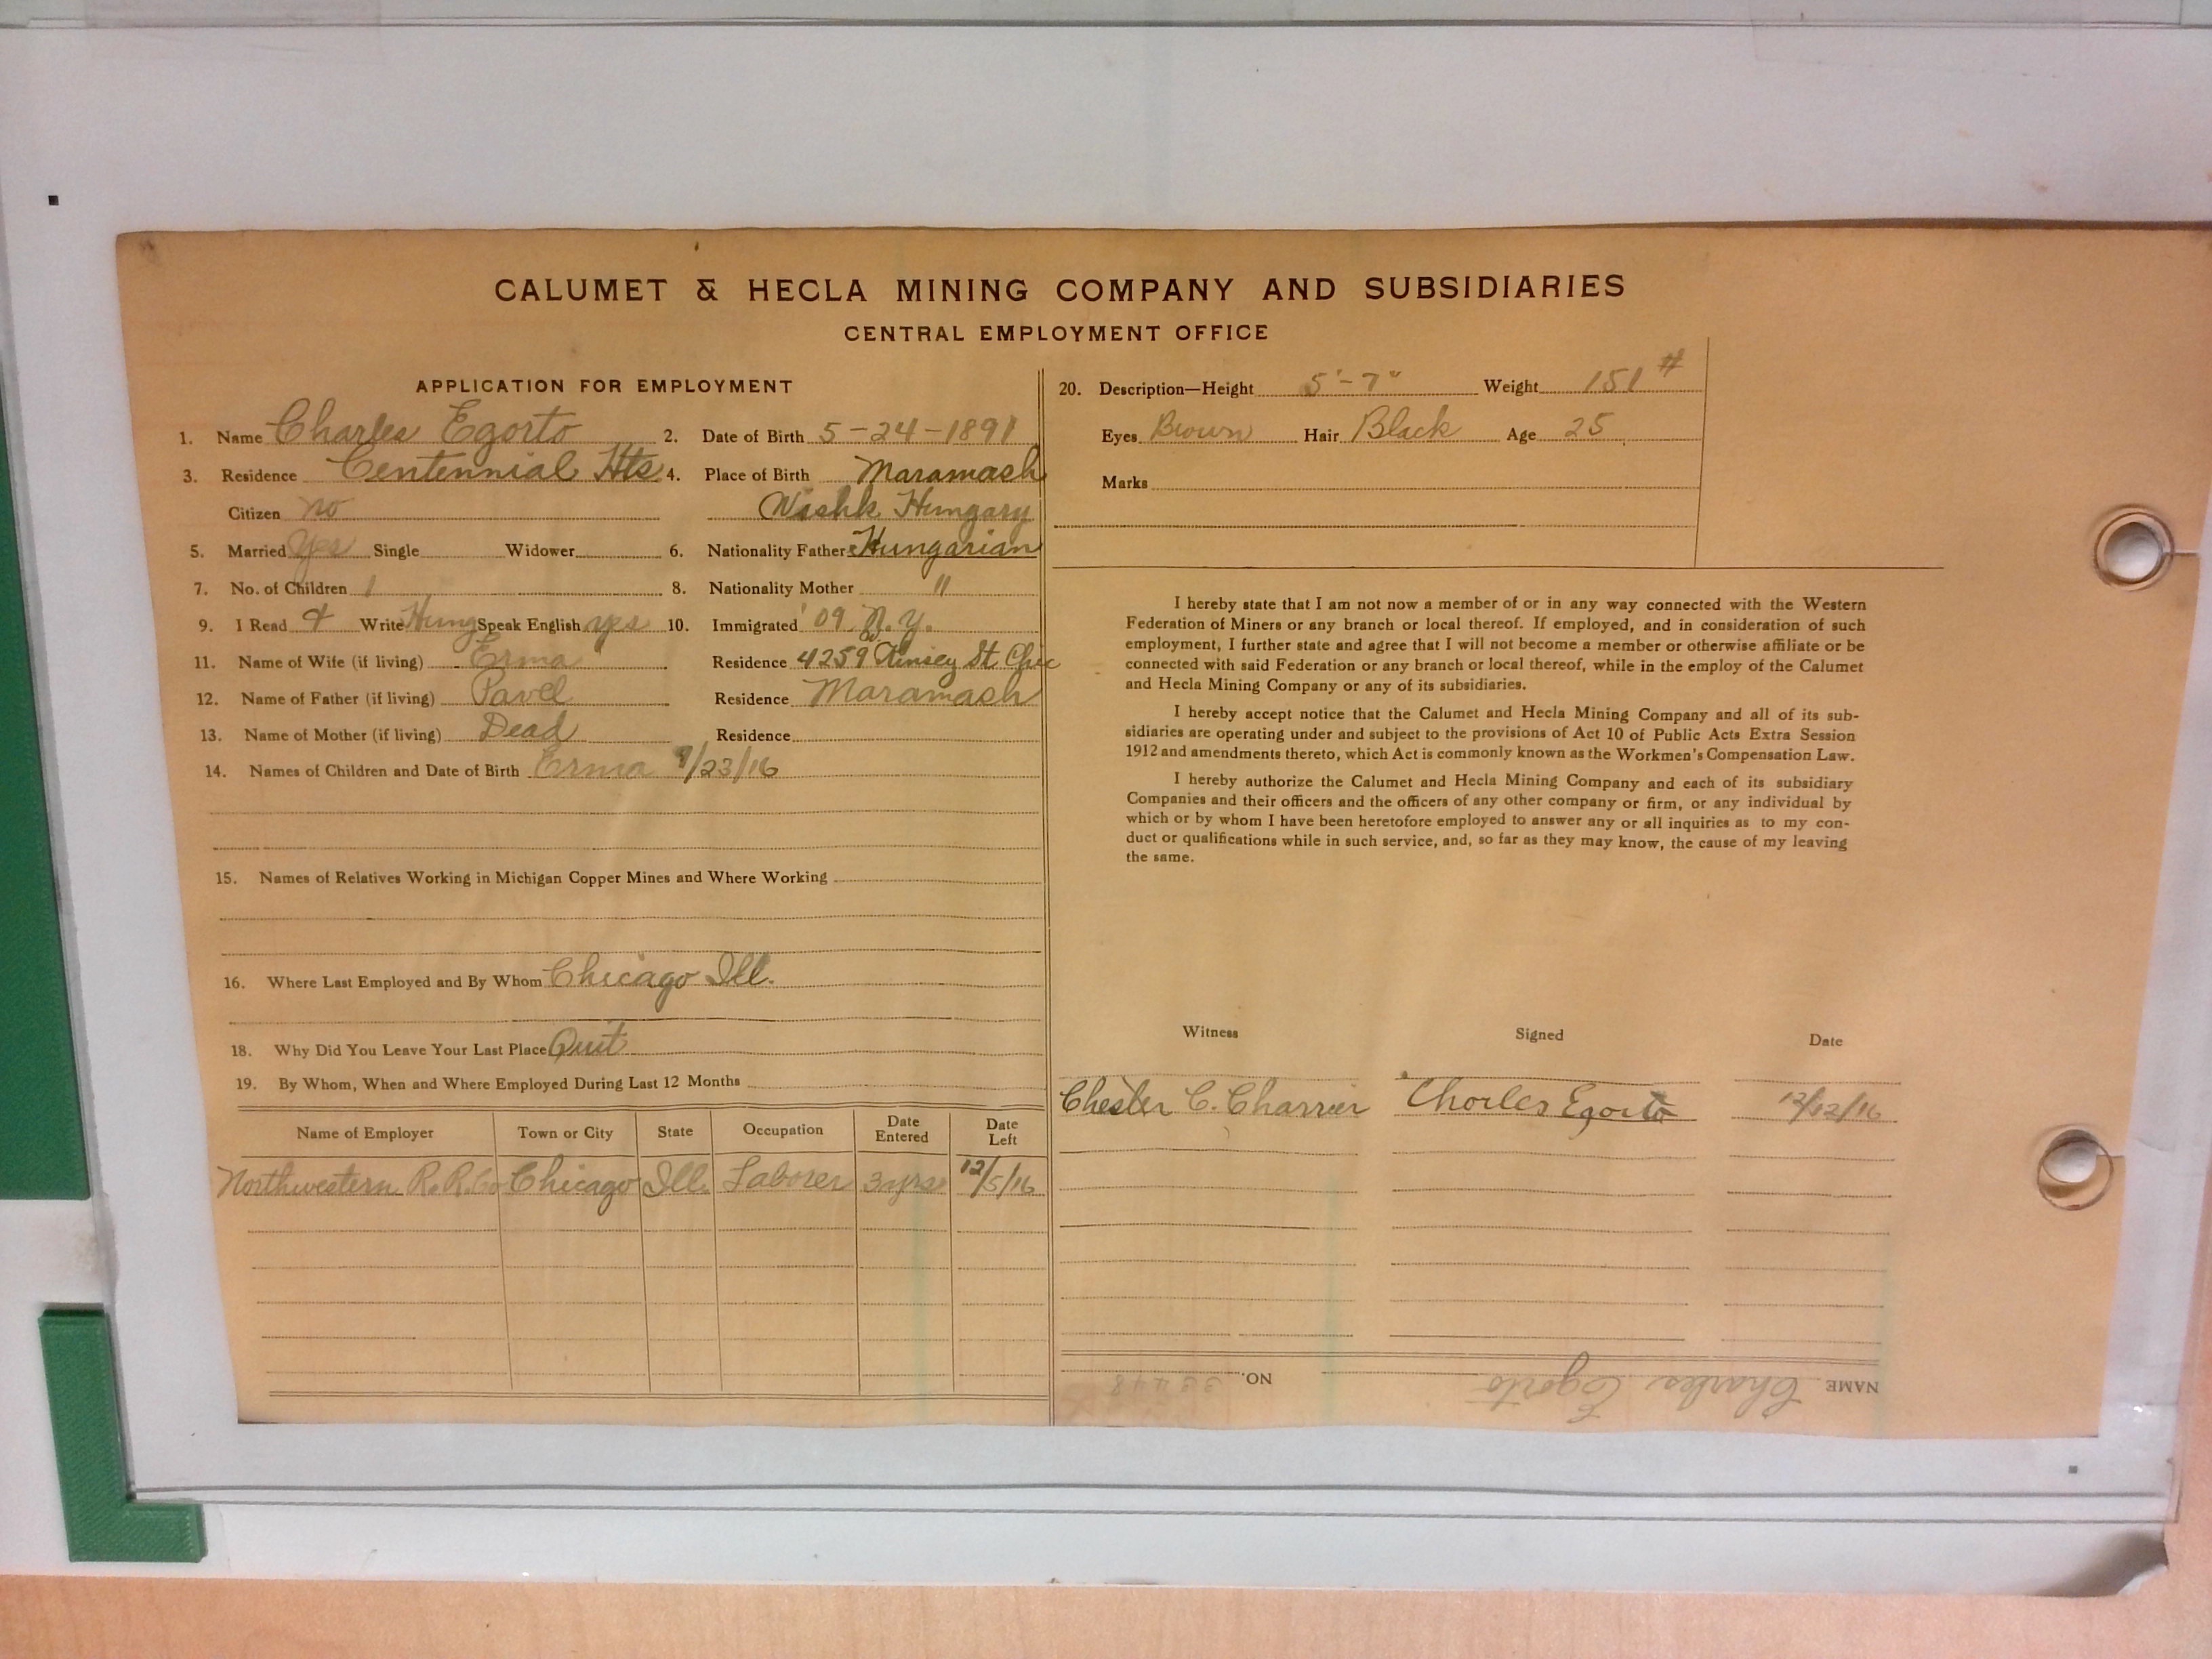 CALUMET & HECLA MINING COMPANY AND SUBSIDIARIES
CENTRAL EMPLOYMENT OFFICE
APPLICATION FOR EMPLOYMENT
1. Name Charles Egorto 2. Date of Birth 5-24-1891
3. Residence Centennial Hts 4. Place of Birth Maramash
Citizen no Wishk Hungary
5. Married Yes Single Widower 6. Nationality Father Hungarian
7. No. of Children 1 8. Nationality Mother "
9. I Read & Write Hung Speak English yes 10. Immigrated '09 N.Y.
11. Name of Wife (if living) Erma Residence 4259 W. Kinsey St. Chic
12. Name of Father (if living) Pavel Residence Maramash
13. Name of Mother (if living) Dead Residence
14. Names of Children and Date of Birth Erma /23/16
15. Names of Relatives Working in Michigan Copper Mines and Where Working
16. Where Last Employed and By Whom Chicago Ill.
18. Why Did You Leave Your Last Place Quit
19. By Whom, When and Where Employed During Last 12 Months
Name of Employer Town or City State Occupation Date Entered Date Left
Northwestern R.R.Co Chicago Ill. Laborer 3 yrs 12/5/16
20. Description—Height 5'-7" Weight 151#
Eyes Brown Hair Black Age 25
Marks
I hereby state that I am not now a member of or in any way connected with the Western
Federation of Miners or any branch or local thereof. If employed, and in consideration of such
employment, I further state and agree that I will not become a member or otherwise affiliate or be
connected with said Federation or any branch or local thereof, while in the employ of the Calumet
and Hecla Mining Company or any of its subsidiaries.
I hereby accept notice that the Calumet and Hecla Mining Company and all of its sub-
sidiaries are operating under and subject to the provisions of Act 10 of Public Acts Extra Session
1912 and amendments thereto, which Act is commonly known as the Workmen's Compensation Law.
I hereby authorize the Calumet and Hecla Mining Company and each of its subsidiary
Companies and their officers and the officers of any other company or firm, or any individual by
which or by whom I have been heretofore employed to answer any or all inquiries as to my con-
duct or qualifications while in such service, and, so far as they may know, the cause of my leaving
the same.
Witness Signed Date
Chester C. Charrier Charles Egorto 12/12/16
NAME Charles Egorto NO.